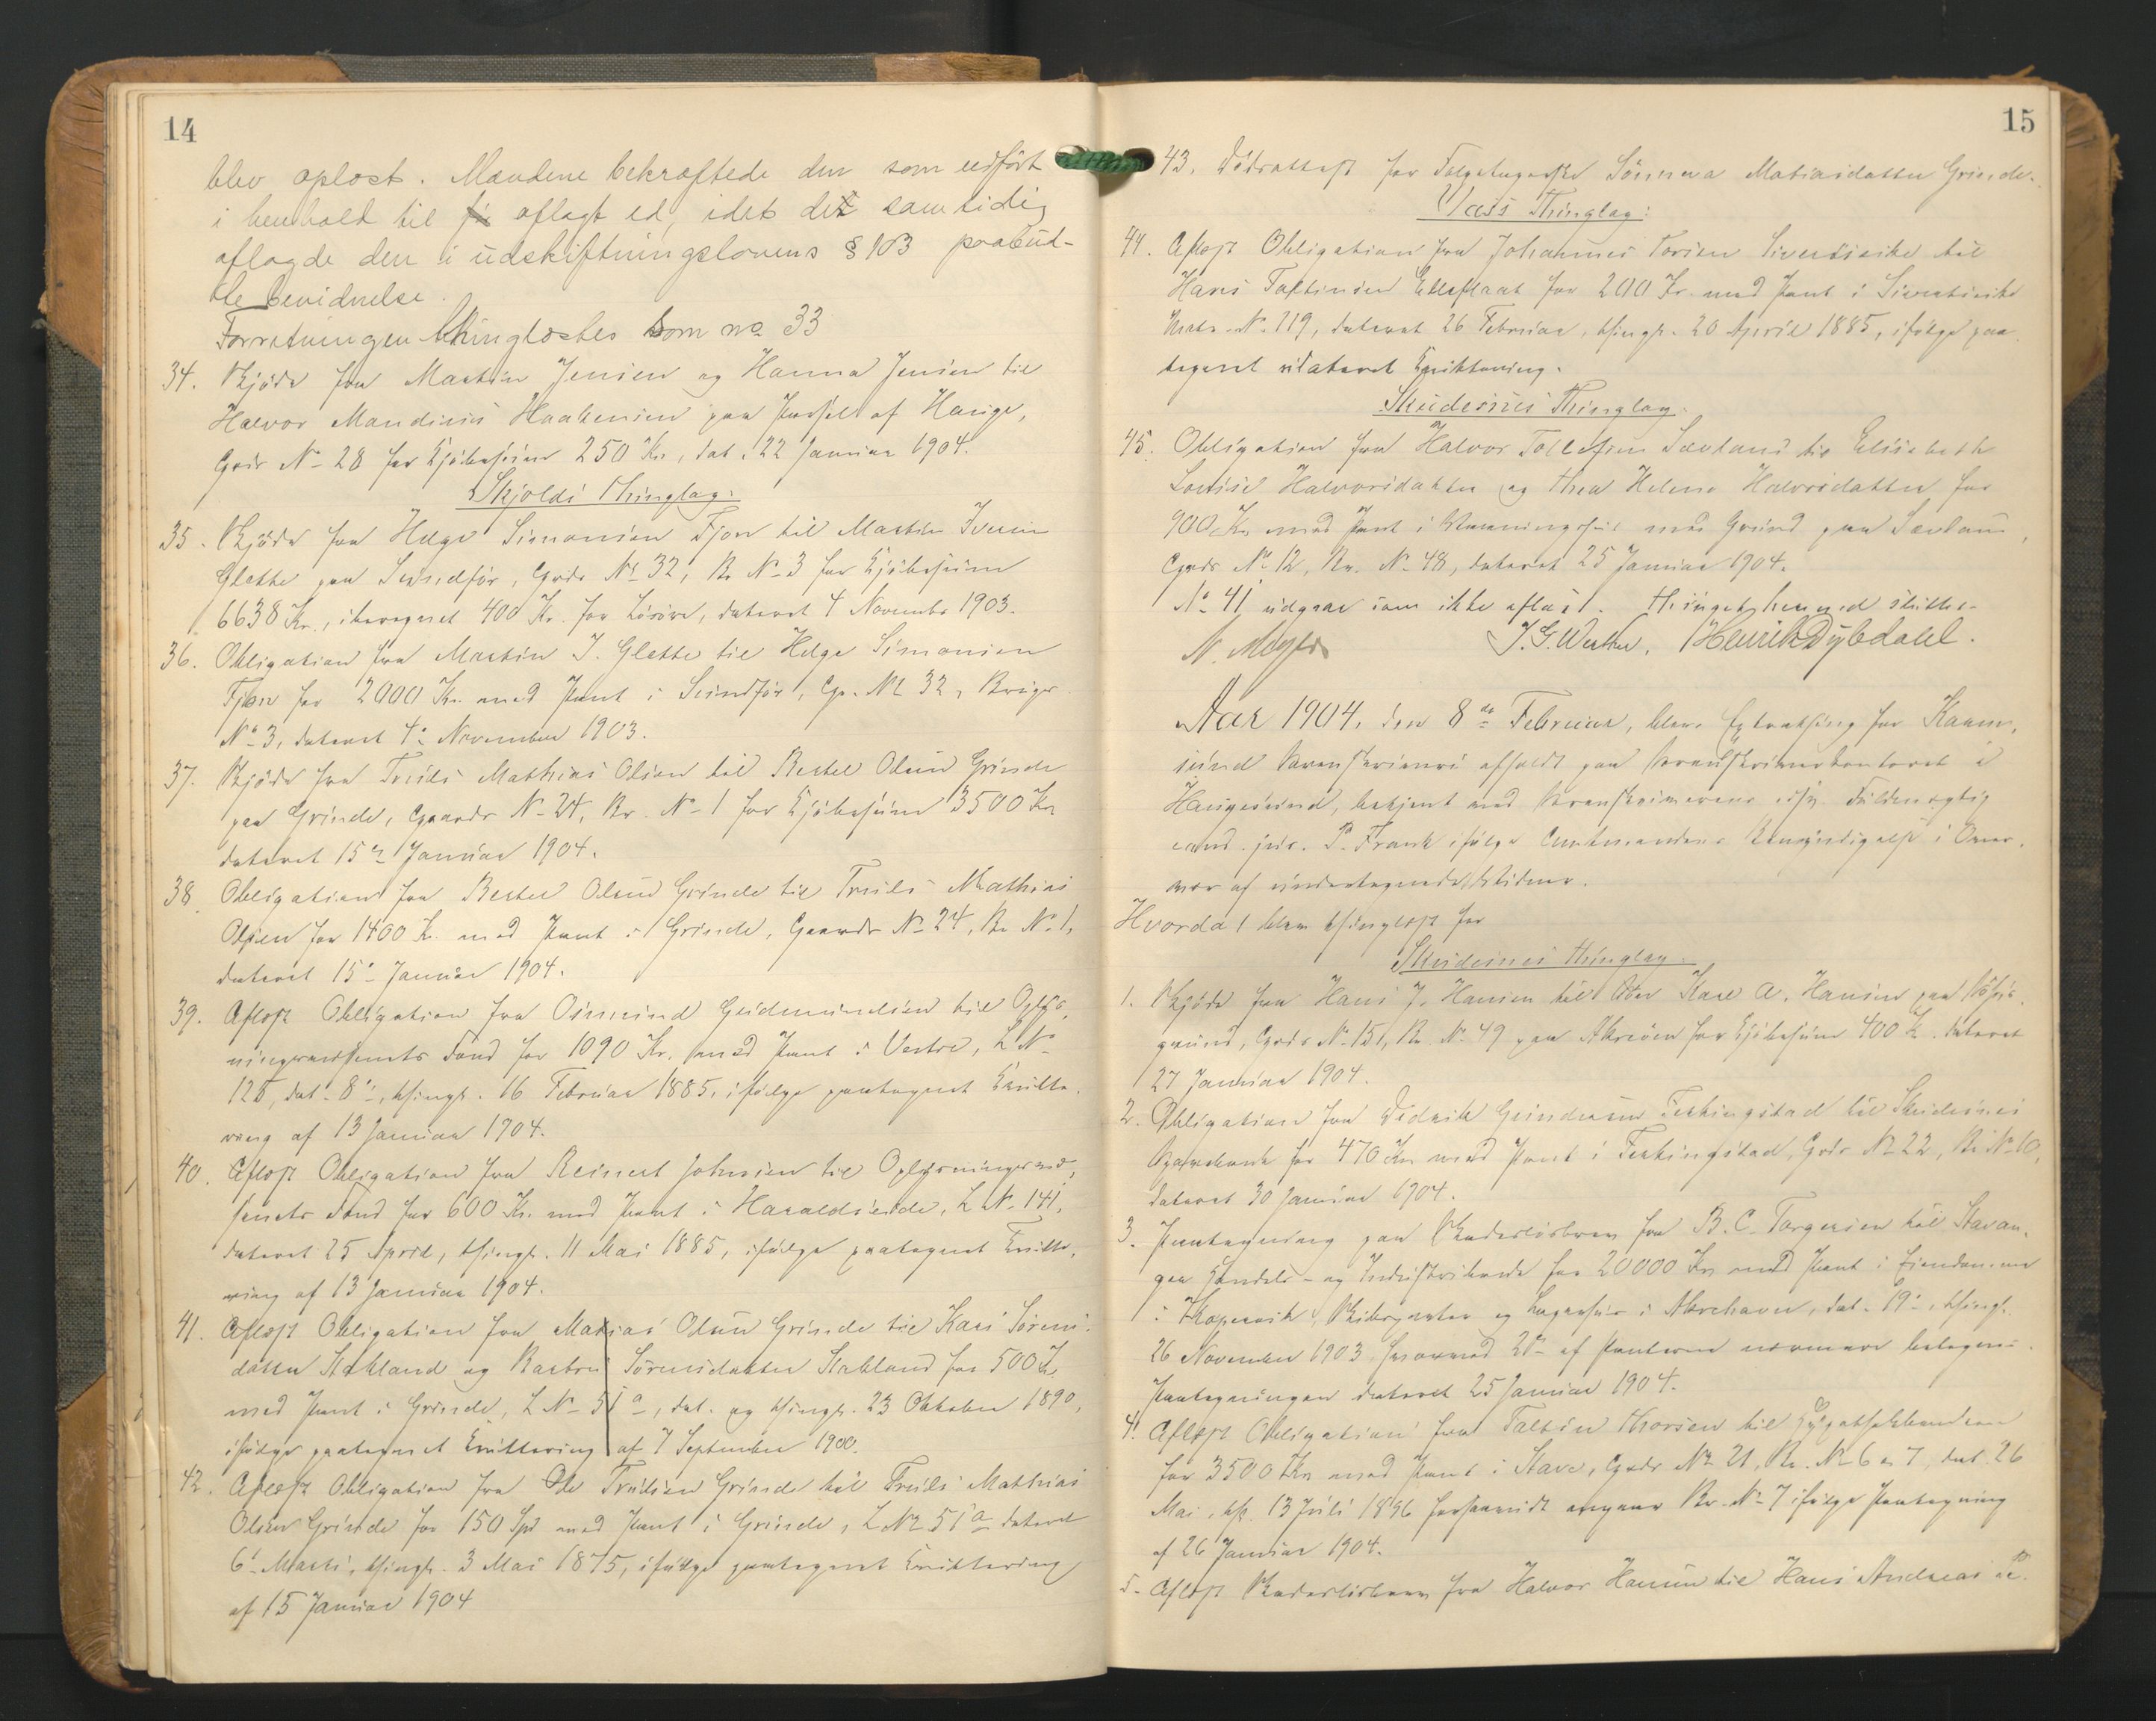 14
blev oplæst. Mændene bekræftede den som udført
i henhold til aflagt ed, idet de samtidig
aflagde den i udskiftningslovens § 103 paabud-
te bevidnelse.
Forretningen thinglæstes som no 33
34. Skjöde fra Martin Jensen og Hanna Jensen til
Halvor Mandius Haakensen paa Parsel af Hauge,
Grds No 28 for Kjöbesum 250 Kr, dat. 22 Januar 1904.
Skjolds Thinglag:
35. Skjöde fra Helge Simonsen Fjon til Martin Iversen
Glette paa Sundför, Grds No 32, Br No 3 for Kjöbesum
6638 Kr., iberegnet 400 Kr. for Lösöre, dateret 4 Novembr 1903.
36. Obligation fra Martin I. Glette til Helge Simonsen
Fjon for 2000 Kr. med Pant i Sundför, Gr. No 32, Brugs
No 3, dateret 4de November 1903.
37. Skjöde fra Truls Mathias Olsen til Bertel Olsen Grinde
paa Grinde, Gaards No 24, Br. No 1 for Kjöbesum 3500 Kr
dateret 15de Januar 1904.
38. Obligation fra Bertel Olsen Grinde til Truls Mathias
Olsen for 1400 Kr. med Pant i Grinde, Gaards No 24, Br No 1,
dateret 15de Januar 1904.
39. Aflöst Obligation fra Osmund Gudmundsen til Oplys-
ningsvæsenets Fond for 1090 Kr. med Pant i Vestre, L No
128, dat. 8de, thingl. 16 Februar 1885, ifölge paategnet Kvitte-
ring af 13 Januar 1904.
40. Aflöst Obligation fra Reinert Johnsen til Oplysningsvæ-
senets Fond for 600 Kr. med Pant i Haraldseide, L No 141,
dateret 25 April, thingl. 11 Mai 1885, ifölge paategnet Kvitte-
ring af 13 Januar 1904.
41. Aflöst Obligation fra Matias Olsen Grinde til Kari Sörens-
datter Stakland og Barbro Sörensdatter Stakland for 500 Kr.
med Pant i Grinde, L No 51 a, dat. og thingl. 23 Oktober 1890,
ifölge paategnet Kvittering af 7 September 1900.
42. Aflöst Obligation fra Ole Trulsen Grinde til Truls Mathias
Olsen Grinde for 150 Spd med Pant i Grinde, L No 51 a dateret
6 Marts, thingl. 3 Mai 1875, ifölge paategnet Kvittering
af 15 Januar 1904
15
43. Dödsattest for Sönneva Matiasdatter Grinde.
Vass Thinglag:
44. Aflöst Obligation fra Johannes Torsen til
Hans for 200 Kr. med Pant i
Matr. No 119, dateret 26 Februar, thingl. 20 April 1885, ifölge paa-
tegnet udateret Kvittering.
Skudesnes Thinglag:
45. Obligation fra Halvor Tollefsen Sævland til Elisabeth
Lovise Halvorsdatter og Thea Helene Halvorsdatter for
900 Kr med Pant i Vaaningshus med Grund paa Sævland,
Grds No 12, Br. No 48, dateret 25 Januar 1904.
No 41 udgaar som ikke aflæst. Thinget hermed sluttet.
N. Meyer J. G. Henrik Dybdahl.
Aar 1904, den 8de Februar, blev Extrathing for Karm-
sund Sorenskriveri afholdt paa Sorenskriverkontoret i
Haugesund, betjent med Sorenskriverens edsv. Fuldmægtig
cand. jur. P. Frank ifölge Amtmandens Bemyndigelse i Over-
vær af undertegnede Vidner.
Hvorda blev thinglyst for
Skudesnes Thinglag:
1. Skjöde fra Hans J. Hansen til Karl A. Hansen paa
grund, Grds No 15, Br. No 49 paa Akreöen for Kjöbesum 400 Kr. dateret
27 Januar 1904.
2. Obligation fra Didrik Gundersen Ferkingstad til Skudesnes
Sparebank for 470 Kr med Pant i Ferkingstad, Grds No 22, Br No 10,
dateret 30 Januar 1904.
3. Paategning paa Skadeslösbrev fra B. C. Torgersen til Stavan-
ger Handels- og Industribank for 20000 Kr med Pant i Eiendomme
i Kopervik, og i Akrehavn, dat. 19de, thingl.
26 November 1903 hvorved af Panterne nærmere betegnes.
Paategningen dateret 25 Januar 1904.
4. Aflöst Obligation fra Taltin Thorsen til Hypothekbanken
for 3500 Kr med Pant i Stave, Grds No 21, Br. No 6 & 7, dat. 26
Mai, thl. 13 Juli 1896 forsaavidt angaar Br. No 7 ifölge Paategning
af 26 Januar 1904.
5. Aflöst Skadeslösbrev fra Halvor Hansen til Hans Andreas